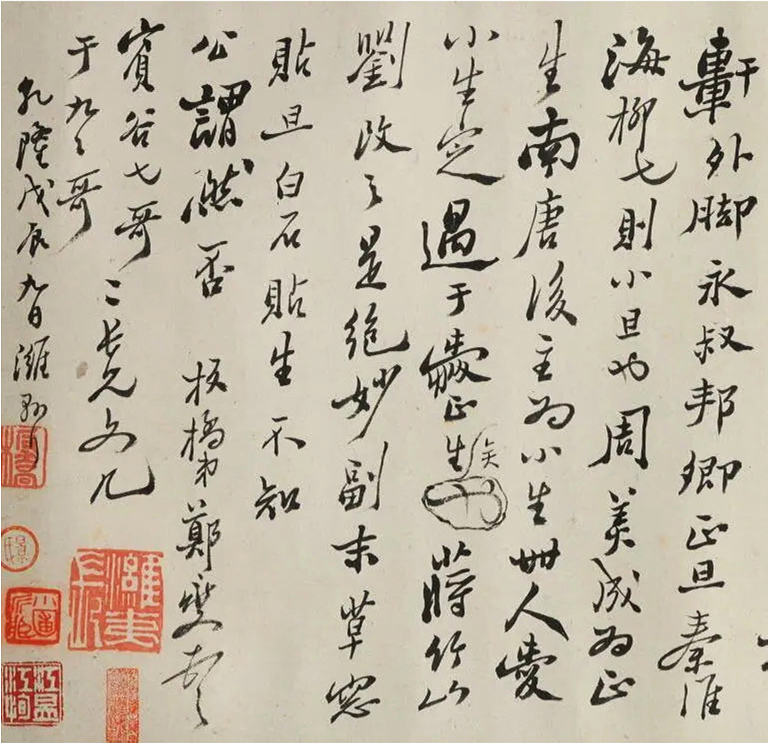 軒外脚永叔邦卿正旦秦淮
海柳七則小旦也周美成為正
生南唐後主為小生世人愛
小生定過于愛正生矣蔣竹山
劉改之是絕妙副末草窗
貼旦白石貼生不知
公謂然否 板橋弟鄭燮頓首
賓谷七哥
于九九哥
二長兄文几
乾隆戊辰九日濰縣
濰夷長